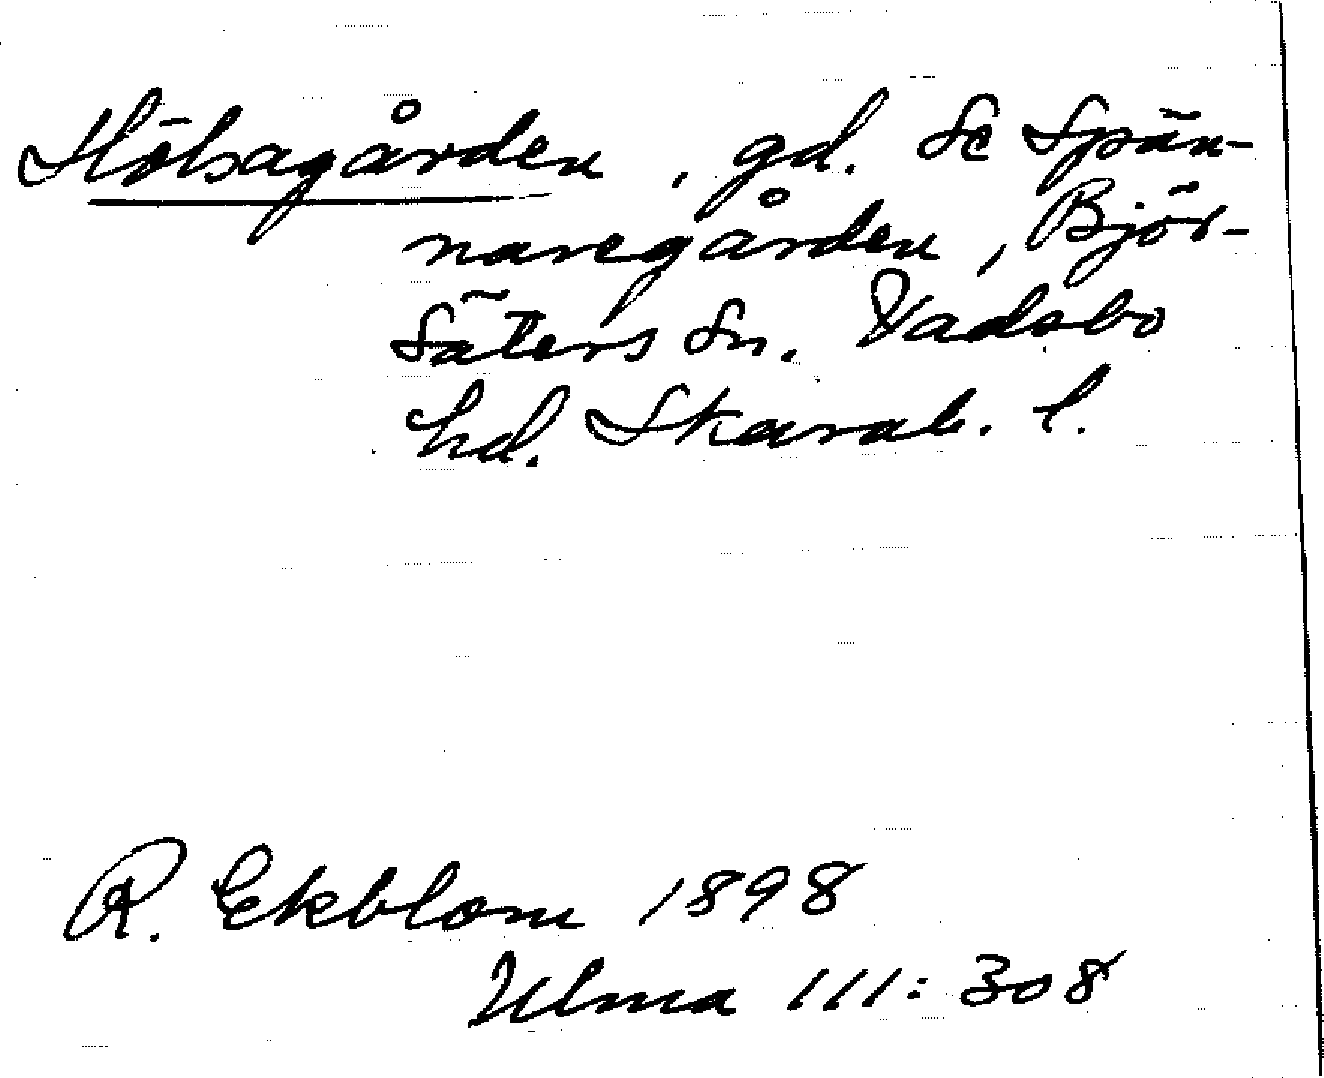 Hölsagården, gd. Se Spän-
naregården, Björ-
säters sn. Vadsbo
hd. Skarab. l.
R. Ekblom 1898
Ulma 111:308